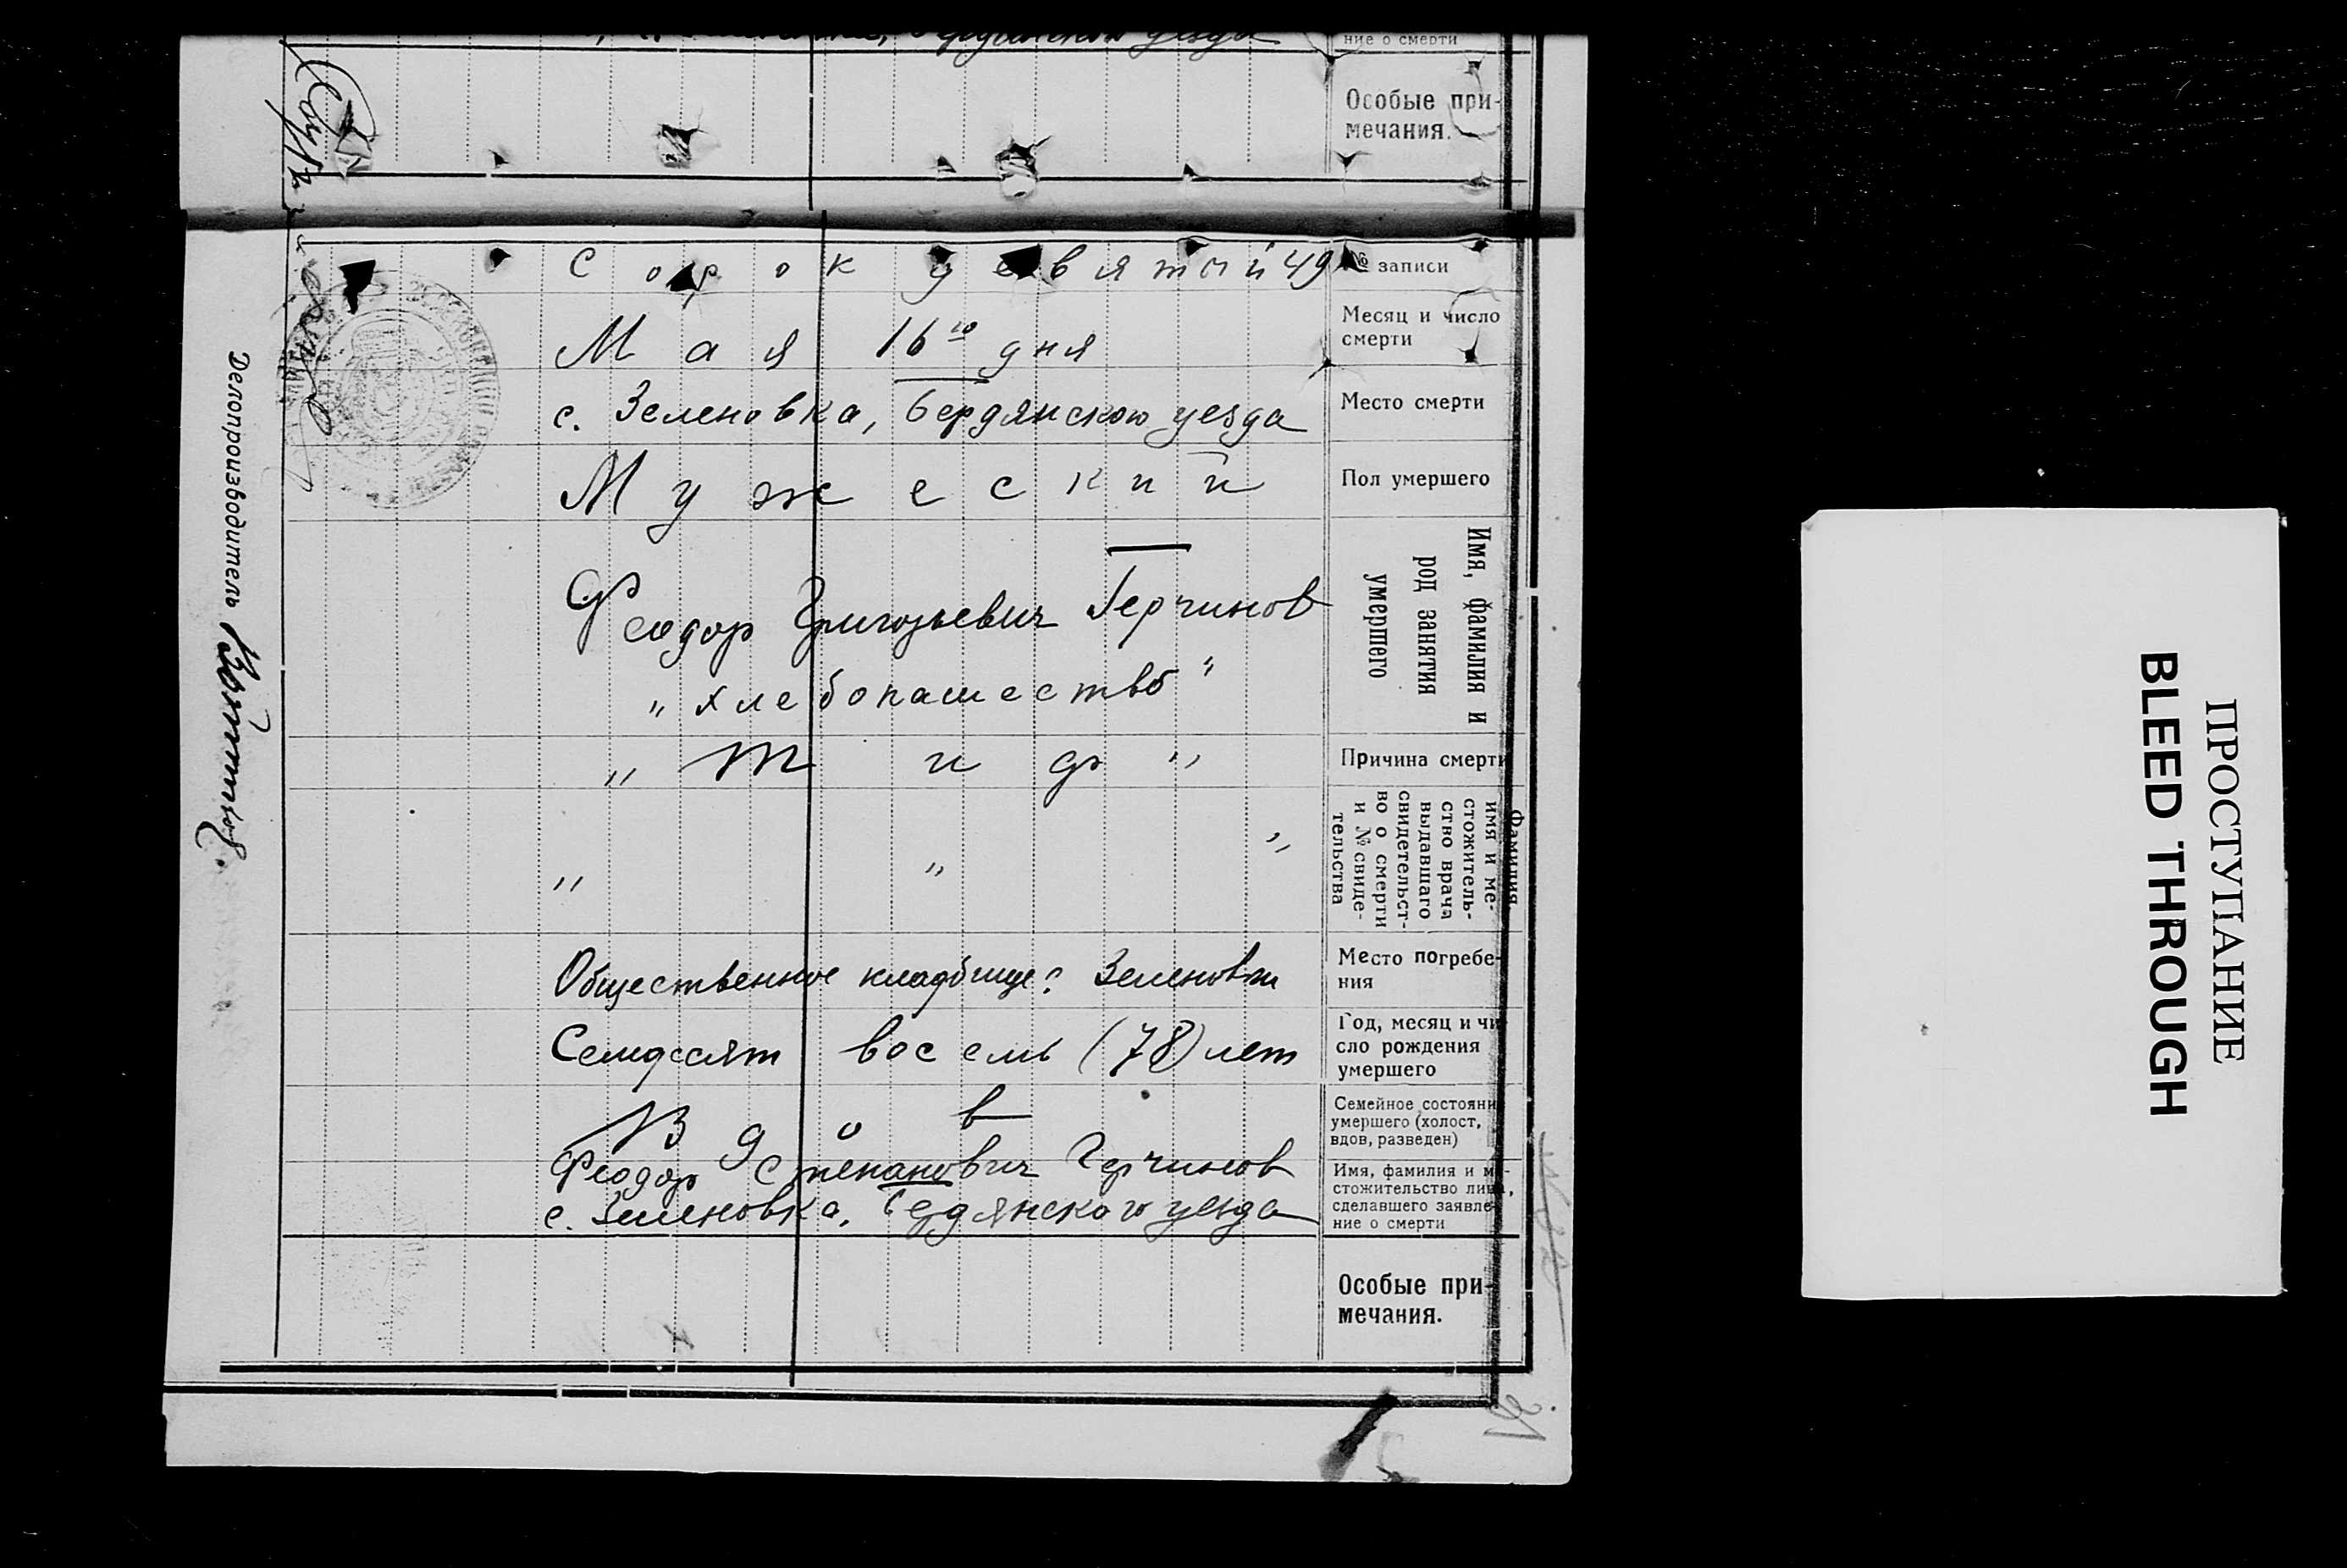 ние о смерти
Особые при-
мечания.
Сорок девятый 49
№ записи
Мая 16го дня
Месяц и число
смерти
с. Зеленовка, Бердянского уезда
Место смерти
Мужеский
Пол умершего
Феодор Григорьевич Герчинов
„хлебопашество"
Имя, фамилия и
род занятия
умершего
„Тиф"
Причина смерти
„ „ „
Фамилия,
имя и ме-
стожитель-
ство врача
выдавшаго
свидетельст-
во о смерти
и № свиде-
тельства
Общественное кладбище с. Зеленовки
Место погребе-
ния
Семдесят восемь (78) лет
Год, месяц и чи-
сло рождения
умершего
Вдов
Семейное состояни
умершего (холост,
вдов, разведен)
Феодор Степанович Герчинов
с. Зеленовка, Бердянского уезда
Имя, фамилия и ме-
стожительство лица,
сделавшего заявле-
ние о смерти
Особые при-
мечания.
Делопроизводитель
ПРОСТУПАНИЕ
BLEED THROUGH